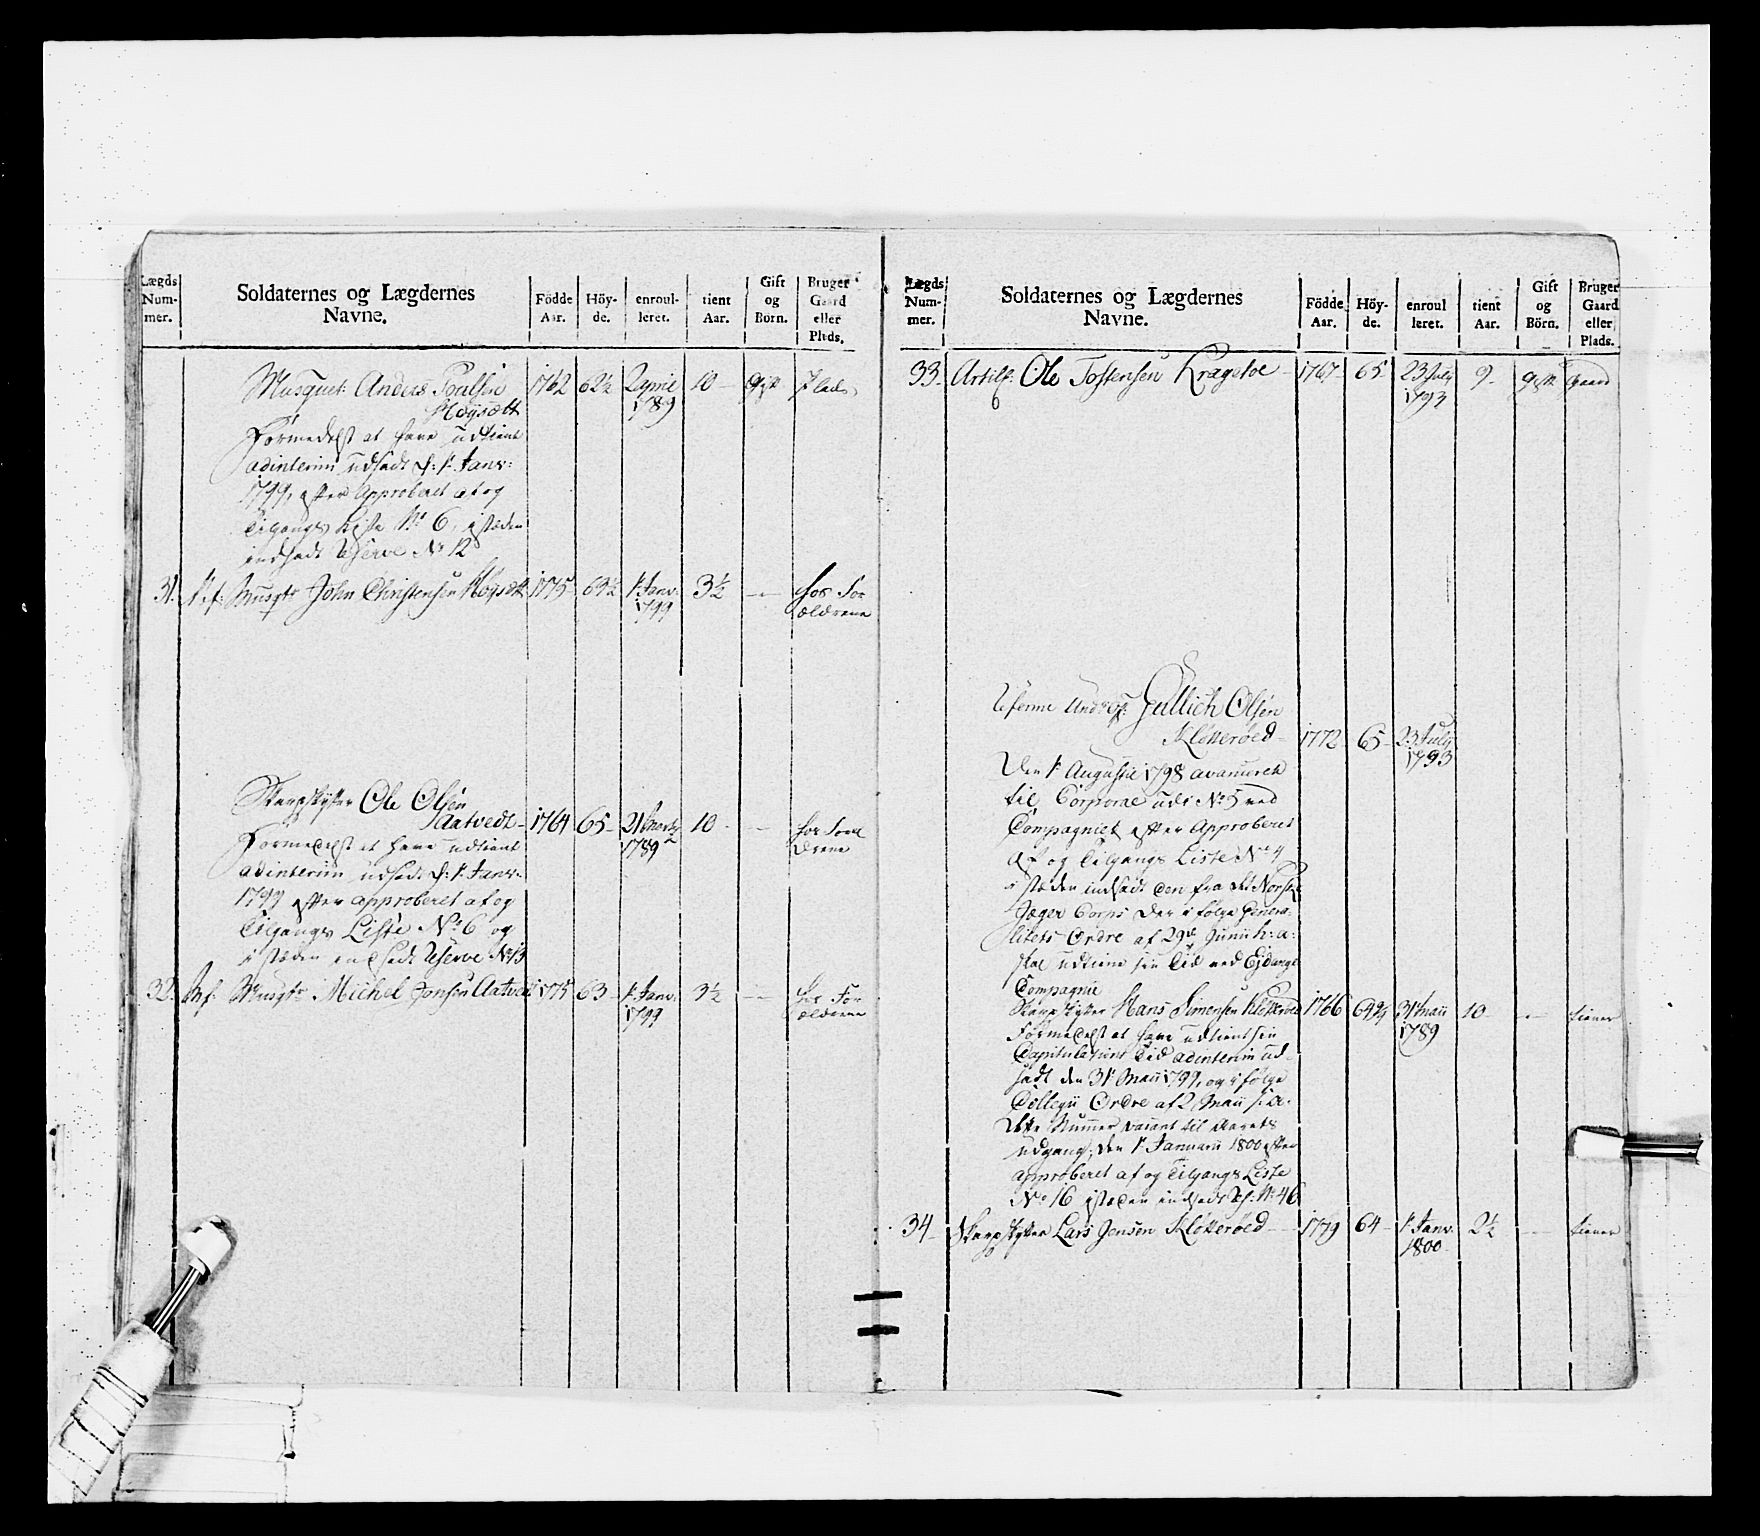 Lægds
Num-
mer.
Soldaternes og Lægdernes
Navne.
Födde
Aar.
Höy-
de.
enroul-
leret.
tient
Aar.
Gift
og
Börn.
Bruger
Gaard
eller
Plads.
Musquet. Anders Poulsen 1762 62½ 2 Junii 10 Gift Plads
Höysætt 1789
Formedelst at have udtient
adinterim udsadt d: 1st Janv:
1799, efter Approberet af og
Tilgangs Liste No 6, i stæden
indsadt Reserve No 12
31. Nf: Musqt: John Christensen Höysætt 1775 63½ 1 Janv: 3½ -- hos For
1799 ældrene
Skarpskytter Ole Olsen
Aatvedt 1764 65 21 10 -- hos Foræl
1789 drene
Formedelst at have udtient
adinterim udsadt d: 1 Janv:
1799 efter approberet af og
Tilgangs Liste No 6 og
i stæden indsadt Reserve No 13
32. Nf: Musqt: Michel Jonsen Aatvedt 1775 63 1 Janv: 3½ -- hos For
1799 ældrene
Lægds
Num-
mer.
Soldaternes og Lægdernes
Navne.
Födde
Aar.
Höy-
de.
enroul
leret.
tient
Aar.
Gift
og
Börn.
Bruger
Gaard
eller
Plads.
33. Artil: Ole Tostensen Kragetoe 1767 65 23 July 9 gift Gaard
1793
Gullich Olsen
Klötteröed 1772 65 23 July
1793
Den 1 Augustii 1798 avanceret
til Corporal udi No 5 ved
Compagniet efter Approberet
af og Tilgangs Liste No 4
i stæden indsadt den fra det Norske
Jæger Corps der i fölge Genera-
litets Ordre af 29de Junii h: a:
skal udtiene sin Tid ved Eidanger
Compagnie
Skarpskytter Hans Simensen Klötteröed 1766 64¾ 31 Maii 10 -- tiener
1789
Formedelst at have udtient sin
Capitulations Tid adinterim ud-
sadt den 31 Maii 1799, og i fölge
Collegii Ordre af 2 Maii s: a:
dette Nummer vacant til Aarets
udgang; den 1 Januarii 1800 efter
approberet af og Tilgangs Liste
No 16 i stæden indsadt Rs: No 46
34 Skarpskytter Lars Jensen Klötteröed 1779 64 1 Janv: 2½ -- tiener
1800